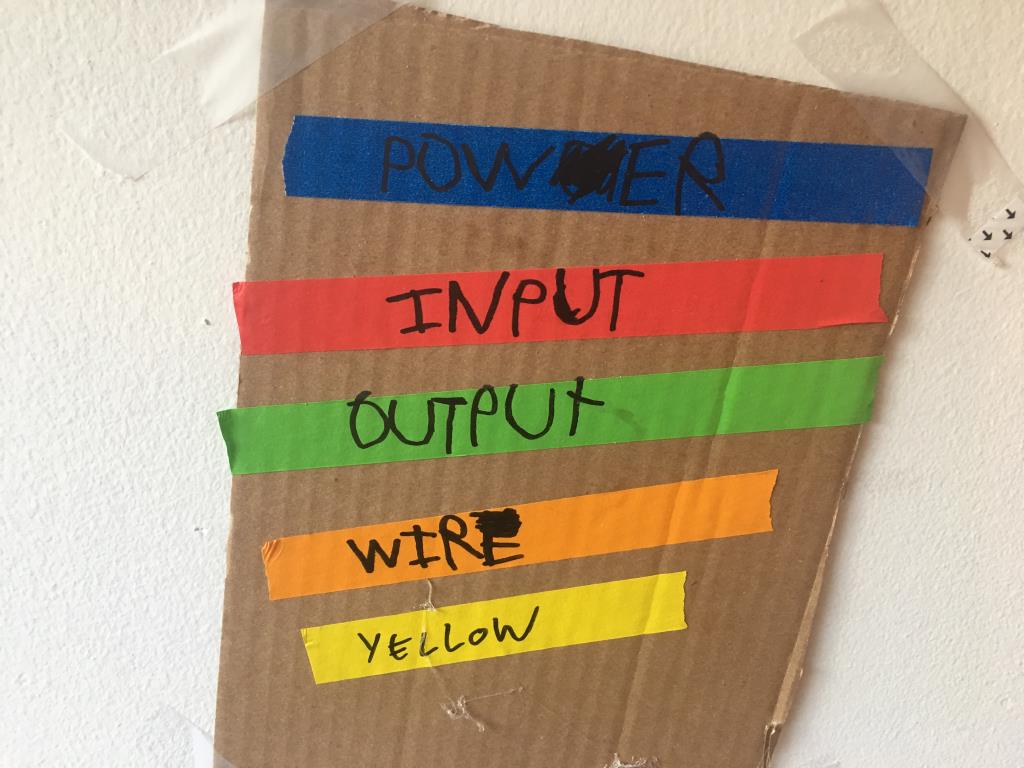 POWER
INPUT
OUTPUT
WIRE
YELLOW